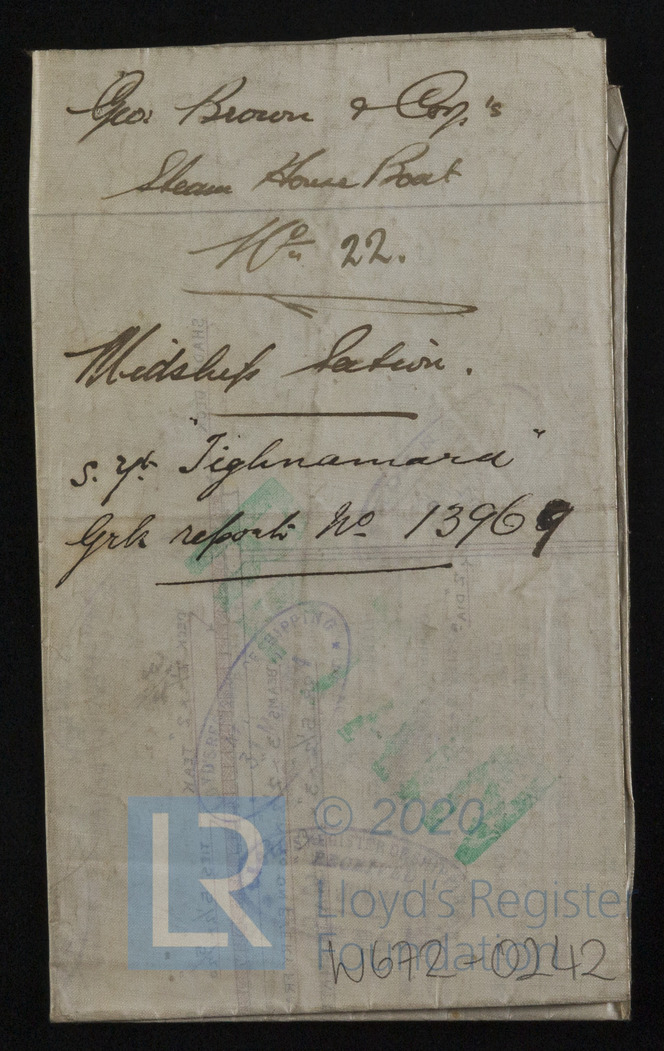 Geo: Brown & Coy's
Steam House Boat
No 22.
Midship Section.
s. yt "Tighnamara"
Grk report No 13969
SHIPPING
REGISTER OF
RECEIVED
LR
© 2020
Lloyd's Register
Foundation
W672-0242